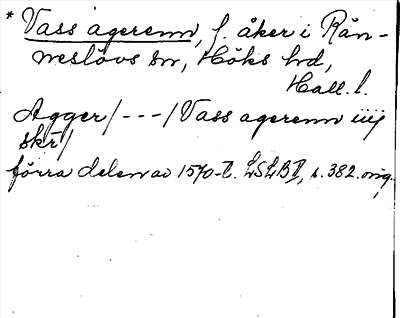 * Vass ageren, f. åker i Rän-
neslövs sn, Höks hd,
Hall. l.
Agger/---/Vass ageren iiij
skr/
förra delen av 1570-t. LSLB II, s. 382. orig.